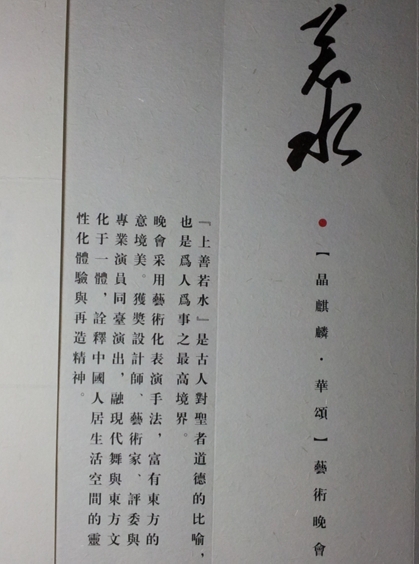 若水
【晶麒麟·華頌】藝術晚會
『上善若水』是古人對聖者道德的比喻，
也是爲人爲事之最高境界。
晚會采用藝術化表演手法，富有東方的
意境美。獲奬設計師、藝術家、評委與
專業演員同臺演出，融現代舞與東方文
化于一體，詮釋中國人居生活空間的靈
性化體驗與再造精神。